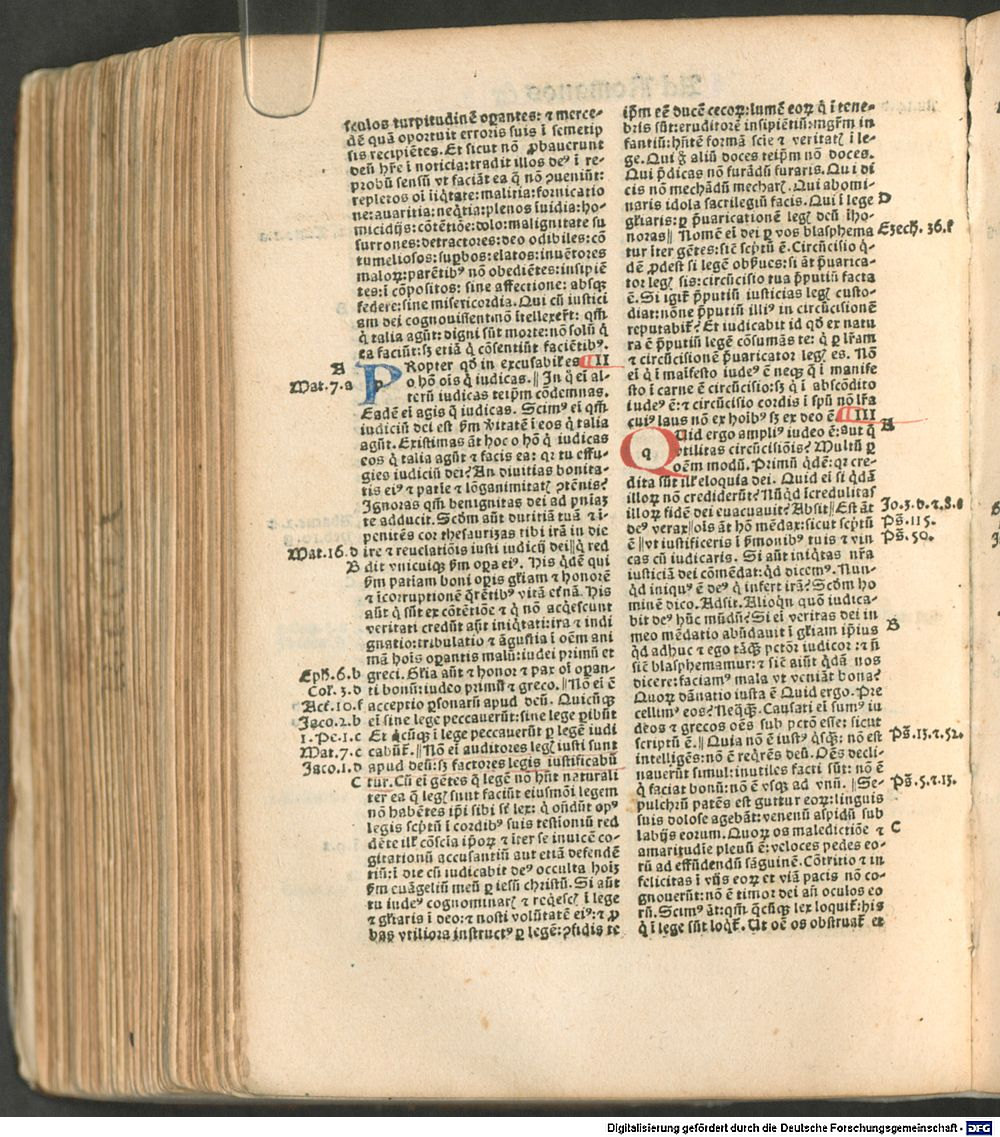 sculos turpitudinē oꝑantes: ⁊ merce-
dē quā oportuit erroris sui i semetip
sis recipiētes. Et sicut nō ꝓbauerunt
deū hr̄e i noticia: tradit illos deꝰ i re-
probū sensū vt faciāt ea q̄ nō ꝯueniūt:
repletos oī iīqtate: malitia: fornicatio
ne: auaritia: neq̄tia: plenos iuidia: ho-
micidijs: cōtētiōe: dolo: malignitate su
surrones: detractores: deo odibiles: cō
tumeliosos: suꝑbos: elatos: inuētores
maloꝝ: parētibꝰ nō obediētes: insipiē
tes: i cōpositos: sine affectione: absqꝫ
federe: sine misericordia. Qui cū iustici
am dei cognouissent nō itellexerūt: qm̄
q̇ talia agūt: digni sūt morte: nō solū q̇
ea faciūt: sꝫ etiā q̇ cōsentiūt faciētibꝰ.
A PRopter qd̓ in excusabil̓ es II
Mat. 7. a o hō oīs q̇ iudicas. || In q̄ ei al-
terū iudicas teipm̄ cōdemnas.
Eadē ei agis q̇ iudicas. Scimꝰ ei qm̄
iudiciū dei est ẜm v̓itatē i eos q̇ talia
agūt. Existimas āt hoc o hō q̇ iudicas
eos q̇ talia agūt ⁊ facis ea: qꝛ tu effu-
gies iudiciū dei? An diuitias bonita-
tis eiꝰ ⁊ patie ⁊ lōganimitatꝭ ꝯtēnis?
Ignoras qm̄ benignitas dei ad pniaꝫ
te adducit. Scd̓m aūt duritiā tuā ⁊ i-
penitēs cor thesaurizas tibi irā in die
Mat. 16. d ire ⁊ reuelatiōis iusti iudicij dei || q̇ red
B dit vnicuiqꝫ ẜm oꝑa eiꝰ. His qdē qui
ẜm patiam boni oꝑis gl̓iam ⁊ honorē
⁊ icorruptionē q̄rētibꝰ vitā et̓nā. His
aūt q̇ sūt ex cōtētiōe ⁊ q̇ nō acq̇escunt
veritati credūt aūt iniq̇tati: ira ⁊ indi
gnatio: tribulatio ⁊ āgustia i oēm ani
mā hoīs oꝑantis malū: iudei primū et
Eph. 6. b greci. Gl̓ia aūt ⁊ honor ⁊ pax oī oꝑan-
Col. 3. d ti bonū: iudeo primū ⁊ greco. || Nō ei ē
Act. 10. f acceptio ꝑsonarū apud deū. Quicūqꝫ
Jaco. 2. b ei sine lege peccauerūt: sine lege ꝑibūt
1. Pe. 1. c Et q̇cūqꝫ i lege peccauerūt ꝑ legē iudi
Mat. 7. c cabūt̓. || Nō ei auditores legꝭ iusti sunt
Jaco. 1. d apud deū: sꝫ factores legis iustificabū
C tur. Cū ei gētes q̄ legē nō hn̄t naturali
ter ea q̄ legꝭ sunt faciūt eiusmōi legem
nō habētes ip̄i sibi sē lex: q̇ on̄dūt opꝰ
legis sc̓ptū i cordibꝰ suis testioniū red
dēte ill̓ cōscīa ip̄oꝝ ⁊ iter se inuicē co-
gitationū accusantiū aut etiā defendē
tiū: i die cū iudicabit deꝰ occulta hoīꝫ
ẜm euāgeliū meū ꝑ iesū christū. Si aūt
tu iudeꝰ cognominarꝭ ⁊ req̇escꝭ i lege
⁊ gl̓iaris i deo: ⁊ nosti volūtatē eiꝰ: ⁊ ꝓ
bas vtiliora instructꝰ ꝑ legē: ꝯfidis te
ip̄m eē ducē cecoꝝ: lumē eoꝝ q̇ i tene-
bris sūt: eruditorē insipiētiū: mgr̄m in
fantiū: hn̄tē formā scīe ⁊ veritatꝭ i le-
ge. Qui ḡ aliū doces teipm̄ nō doces.
Qui p̄dicas nō furādū furaris. Qui di
cis nō mechādū mecharꝭ. Qui abomi-
naris idola sacrilegiū facis. Qui i lege D
gl̓iaris: ꝑ p̄uaricationē legꝭ deū iho-
noras || Nomē ei dei ꝑ vos blasphema Ezech. 36. f
tur iter gētes: sic̄ sc̓ptū ē. Circūcisio q̇-
dē ꝓdest si legē obẜues: si āt p̄uarica-
tor legꝭ sis: circūcisio tua p̄putiū facta
ē. Si igit̓ p̄putiū iusticias legꝭ custo-
diat: nōne p̄putiū illiꝰ in circūcisionē
reputabit̓? Et iudicabit id qd̓ ex natu
ra ē p̄putiū legē cōsumās te: q̇ ꝑ lr̄am
⁊ circūcisionē p̄uaricator legꝭ es. Nō
ei q̇ i maīfesto iudeꝰ ē neqꝫ q̄ i manife
sto i carne ē circūcisio: sꝫ q̇ i abscōdito
iudeꝰ ē: ⁊ circūcisio cordis i spū nō lr̄a
cuiꝰ laus nō ex hoībꝰ sꝫ ex deo ē. III
QUid ergo ampliꝰ iudeo ē: aut q̄ A
vtilitas circūcisiōis? Multū ꝑ
oēm modū. Primū q̇dē: qꝛ cre-
dita sūt ill̓ eloquia dei. Quid ei si q̇dā
illoꝝ nō crediderūt? Nūqd̓ icredulitas
illoꝝ fidē dei euacuauit? Absit || Est āt Jo. 3. d. ⁊. 8. e
deꝰ verax || oīs āt hō mēdax: sicut sc̓ptū Ps̄. 115.
ē || vt iustificeris i ẜmonibꝰ tuis ⁊ vin Ps̄. 50.
cas cū iudicaris. Si aūt iniq̇tas nr̄a
iusticiā dei cōmēdat: qd̓ dicemꝰ. Nun-
qd̓ iniquꝰ ē deꝰ q̇ infert irā? Scd̓m ho
minē dico. Absit. Alioqn̄ quō iudica-
bit deꝰ hūc mūdū? Si ei veritas dei in
meo mēdatio abūdauit i gl̓iam ip̄ius B
qd̓ adhuc ⁊ ego tāqꝫ pctōr iudicor: ⁊ nō
sic̄ blasphemamur: ⁊ sic̄ aiūt q̇dā nos
dicere: faciamꝰ mala vt veniāt bona?
Quoꝝ dānatio iusta ē Quid ergo. Pre
cellimꝰ eos? Neq̄qꝫ. Causati ei sumꝰ iu
deos ⁊ grecos oēs sub pctō esse: sicut
scriptū ē. || Quia nō ē iustꝰ q̇sqꝫ: nō est Ps̄. 13. ⁊. 52.
intelligēs: nō ē req̇rēs deū. Oēs decli-
nauerūt simul: inutiles facti sūt: nō ē
q̇ faciat bonū: nō ē vsqꝫ ad vnū. || Se- Ps̄. 5. ⁊. 13.
pulchrū patēs est guttur eoꝝ: linguis
suis dolose agebāt: venenū aspidū sub
labijs eorum. Quoꝝ os maledictiōe ⁊ C
amaritudīe plenū ē: veloces pedes eo-
rū ad effūdendū sāguinē. Cōtritio ⁊ in
felicitas i vijs eoꝝ et viā pacis nō co-
gnouerūt: nō ē timor dei an̄ oculos eo
rū. Scimꝰ āt: qm̄ q̄cūqꝫ lex loquit̓: his
q̇ i lege sūt loqt̓. Ut oē os obstruat̓ et
Digitalisierung gefördert durch die Deutsche Forschungsgemeinschaft - DFG